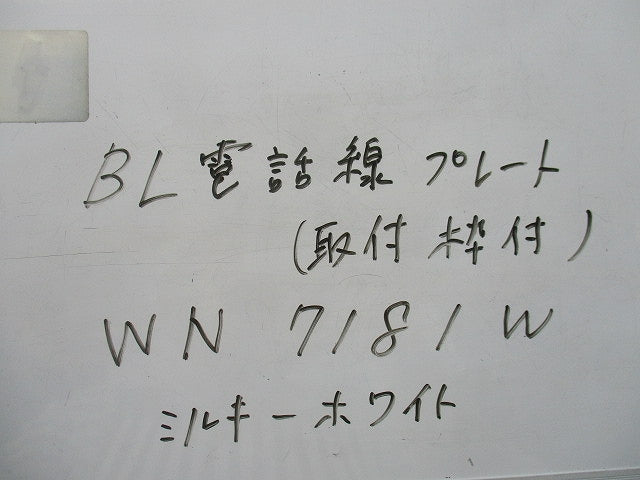 BL電話線プレート
(取付枠付)
WN7181W
ミルキーホワイト